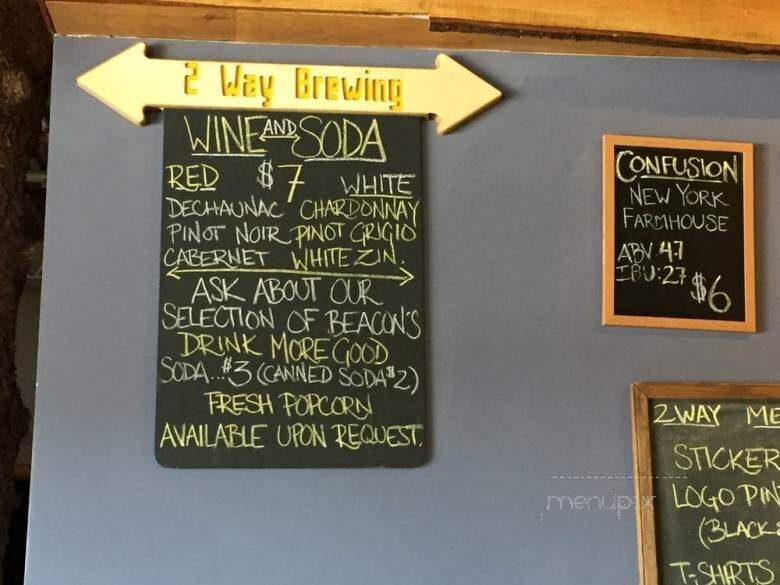 2 Way Brewing
WINE AND SODA
RED $7 WHITE
DECHAUNAC CHARDONNAY
PINOT NOIR PINOT GRIGIO
CABERNET WHITE ZIN.
ASK ABOUT OUR
SELECTION OF BEACON'S
DRINK MORE GOOD
SODA...$3 (CANNED SODA $2)
FRESH POPCORN
AVAILABLE UPON REQUEST.
CONFUSION
NEW YORK
FARMHOUSE
ABV 4.7
IBU:27 $6
2WAY ME
STICKER
LOGO PIN
(BLACK
T-SHIRTS
menupix